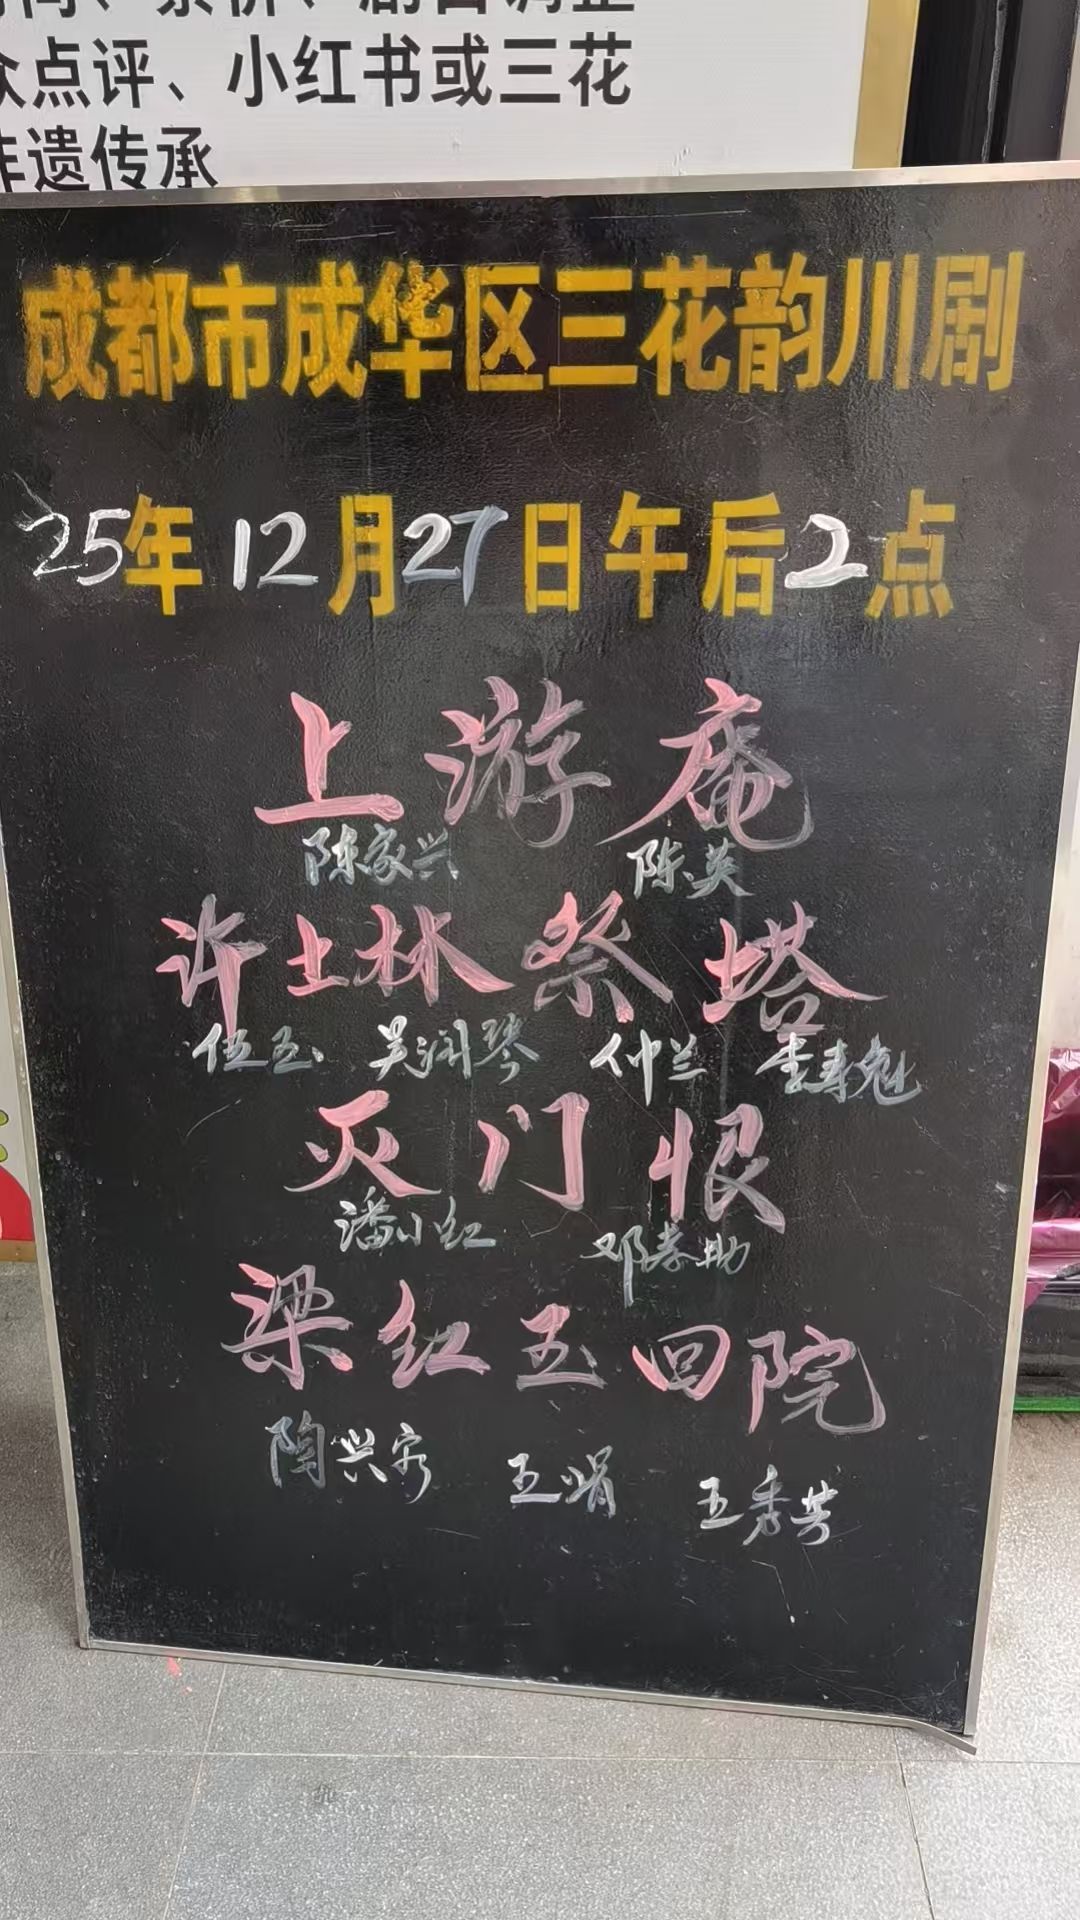 众点评、小红书或三花
非遗传承
成都市成华区三花韵川剧
25年12月27日午后2点
上游庵
陈家兴 陈英
许士林祭塔
伍玉 吴润琴 仲兰 李寿魁
灭门恨
潘小红 邓孝助
梁红玉回院
陶兴容 王娟 王秀芬